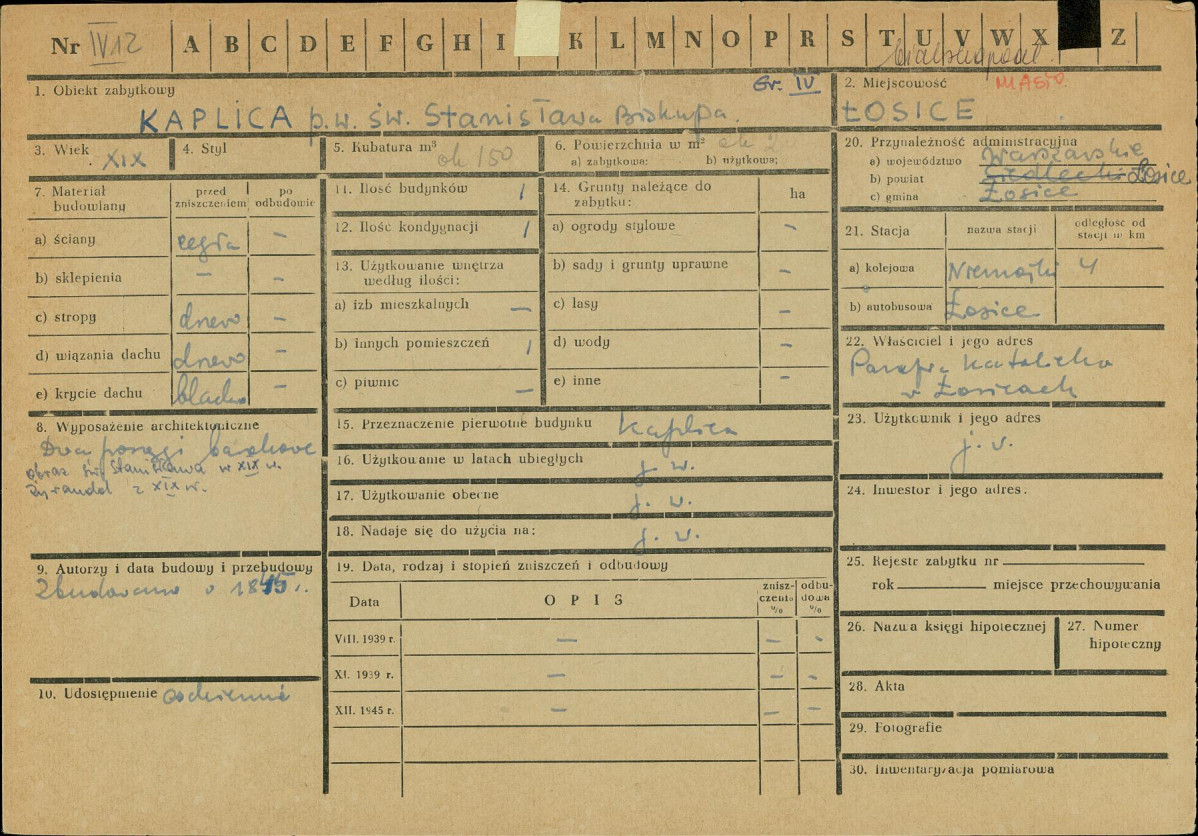 Nr IV12 A B C D E F G H I K L M N O P R S T U V W X Z
1. Obiekt zabytkowy Gr. IV
KAPLICA p.w. św. Stanisława Biskupa.
2. Miejscowość MIASTO
ŁOSICE
3. Wiek XIX
4. Styl
5. Kubatura m³ ok 150
6. Powierzchnia w m² ok
a) zabytkowa: b) użytkowa:
7. Materiał budowlany
przed zniszczeniem
po odbudowie
a) ściany cegła –
b) sklepienia – –
c) stropy drewo –
d) wiązania dachu drewo –
e) krycie dachu blacha –
8. Wyposażenie architektoniczne
Dwa posągi barokowe
obraz św. Stanisława w XIX w.
żyrandol z XIX w.
9. Autorzy i data budowy i przebudowy
Zbudowano w 1845 r.
10. Udostępnienie codziennie
11. Ilość budynków 1
12. Ilość kondygnacji 1
13. Użytkowanie wnętrza
według ilości:
a) izb mieszkalnych –
b) innych pomieszczeń 1
c) piwnic –
14. Grunty należące do
zabytku: ha
a) ogrody stylowe –
b) sady i grunty uprawne –
c) lasy –
d) wody –
e) inne –
15. Przeznaczenie pierwotne budynku kaplica
16. Użytkowanie w latach ubiegłych j. w.
17. Użytkowanie obecne j. w.
18. Nadaje się do użycia na: j. w.
19. Data, rodzaj i stopień zniszczeń i odbudowy
Data OPIS
znisz-
czenia
%
odbu-
dowa
%
VIII. 1939 r. – – –
XI. 1939 r. – – –
XII. 1945 r. – – –
20. Przynależność administracyjna
a) województwo Warszawskie
b) powiat Siedlecki Łosice
c) gmina Łosice
21. Stacja
nazwa stacji
odległość od
stacji w km
a) kolejowa Niemojki 4
b) autobusowa Łosice
22. Właściciel i jego adres
Parafia Katolicka
w Łosicach
23. Użytkownik i jego adres
j. w.
24. Inwestor i jego adres.
25. Rejestr zabytku nr
rok miejsce przechowywania
26. Nazwa księgi hipotecznej
27. Numer
hipoteczny
28. Akta
29. Fotografie
30. Inwentaryzacja pomiarowa